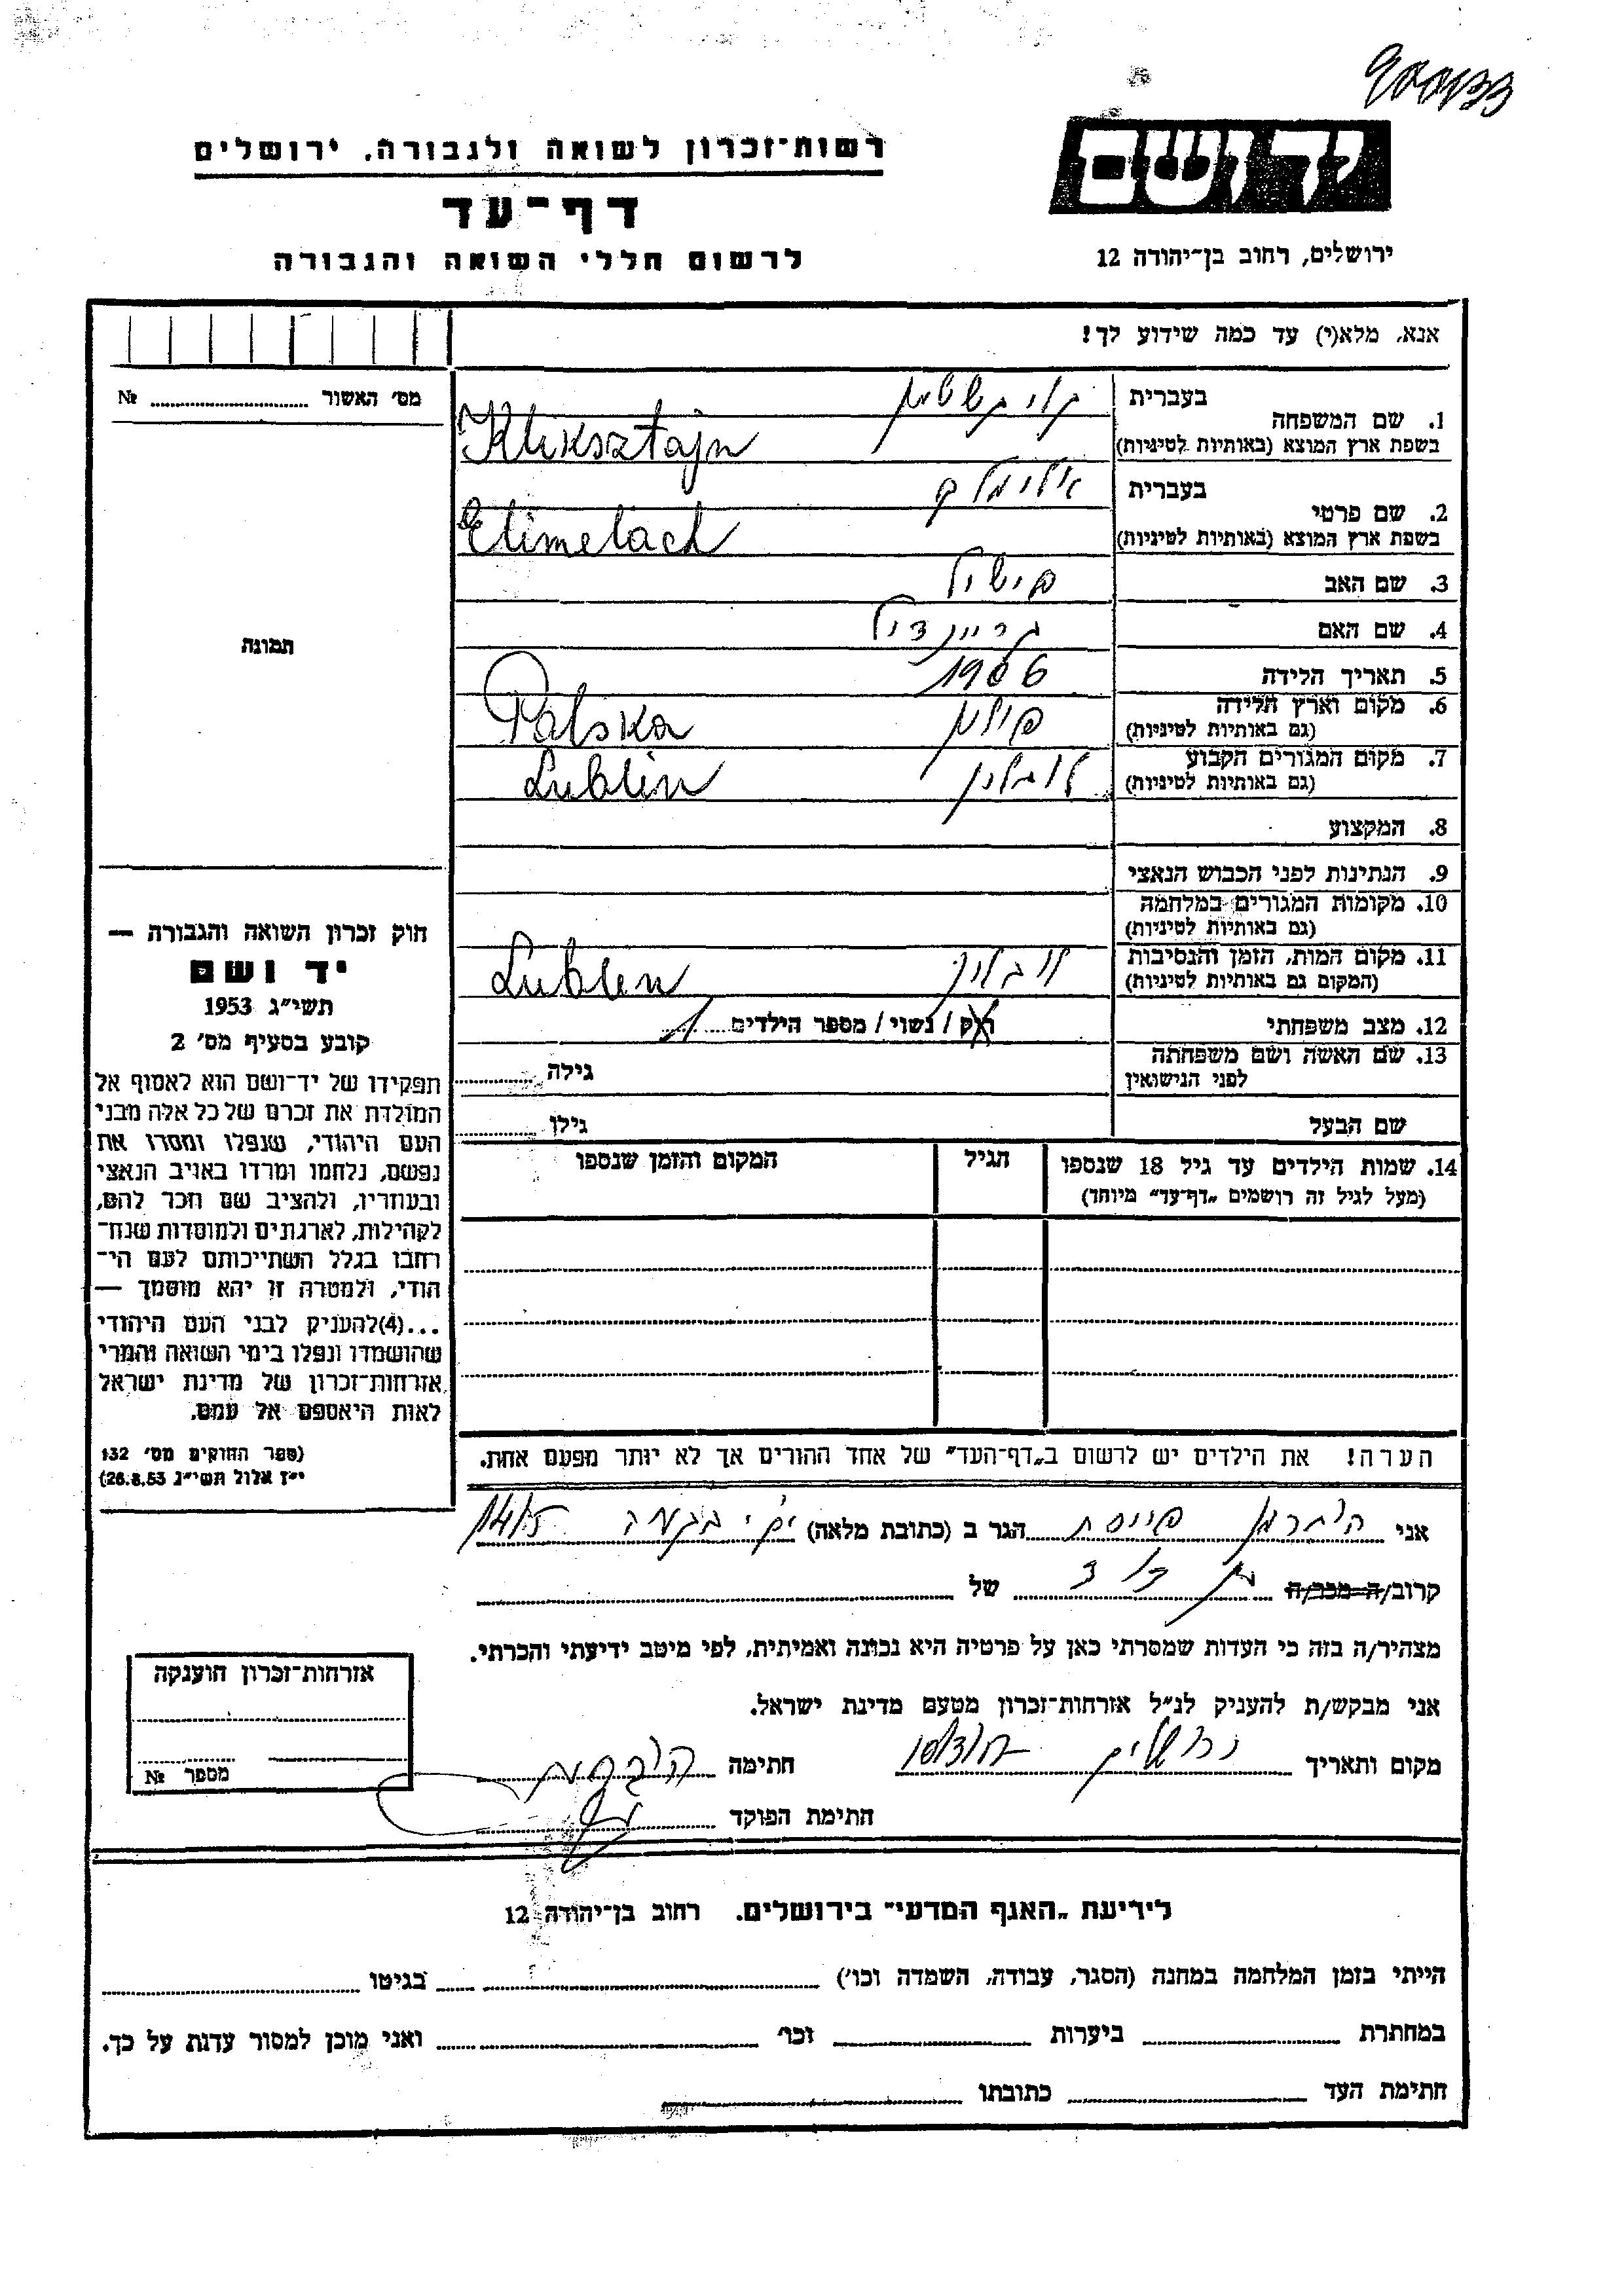 יד ושם
ירושלים, רחוב בן־יהודה 12
רשות־זכרון לשואה ולגבורה, ירושלים
דף־עד
לרשום חללי השואה והגבורה
אנא, מלא(י) עד כמה שידוע לך!
בעברית
1. שם המשפחה
בשפת ארץ המוצא (באותיות לטיניות) Kliksztajn
בעברית אלימלך
2. שם פרטי
בשפת ארץ המוצא (באותיות לטיניות) Elimelach
3. שם האב פישל
4. שם האם
5. תאריך הלידה 1906
6. מקום וארץ הלידה פולין Polska
(גם באותיות לטיניות)
7. מקום המגורים הקבוע לובלין Lublin
(גם באותיות לטיניות)
8. המקצוע
9. הנתינות לפני הכבוש הנאצי
10. מקומות המגורים במלחמה
(גם באותיות לטיניות)
11. מקום המות, הזמן והנסיבות לובלין Lublin
(המקום גם באותיות לטיניות)
12. מצב משפחתי רוק / נשוי / מספר הילדים 1
13. שם האשה ושם משפחתה
לפני הנישואין גילה
שם הבעל גילו
14. שמות הילדים עד גיל 18 שנספו הגיל המקום והזמן שנספו
(מעל לגיל זה רושמים "דף־עד" מיוחד)
הערה! את הילדים יש לרשום ב"דף־העד" של אחד ההורים אך לא יותר מפעם אחת.
מס' האשור №
תמונה
חוק זכרון השואה והגבורה —
יד ושם
תשי"ג 1953
קובע בסעיף מס' 2
תפקידו של יד־ושם הוא לאסוף אל
המולדת את זכרם של כל אלה מבני
העם היהודי, שנפלו ומסרו את
נפשם, נלחמו ומרדו באויב הנאצי
ובעוזריו, ולהציב שם וזכר להם,
לקהילות, לארגונים ולמוסדות שנח־
רבו בגלל השתייכותם לעם הי־
הודי, ולמטרה זו יהא מוסמך —
...(4) להעניק לבני העם היהודי
שהושמדו ונפלו בימי השואה והמרי
אזרחות־זכרון של מדינת ישראל
לאות היאספם אל עמם.
(ספר החוקים מס' 132
י"ז אלול תשי"ג 26.8.53)
אני הוברמן הגר ב (כתובת מלאה)
קרוב/ה מכר/ה בן דוד של
מצהיר/ה בזה כי העדות שמסרתי כאן על פרטיה היא נכונה ואמיתית, לפי מיטב ידיעתי והכרתי.
אני מבקש/ת להעניק לנ"ל אזרחות־זכרון מטעם מדינת ישראל.
מקום ותאריך ירושלים חתימה
חתימת הפוקד
אזרחות־זכרון הוענקה
מספר №
לידיעת "האגף המדעי" בירושלים, רחוב בן־יהודה 12
הייתי בזמן המלחמה במחנה (הסגר, עבודה, השמדה וכו') בגיטו
במחתרת ביערות וכו' ואני מוכן למסור עדות על כך.
חתימת העד כתובתו